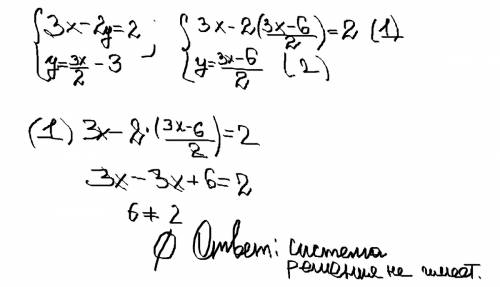 { 3x-2y=2 ; { 3x-2(3x-6/2)=2 (1)
{ y=3x/2-3 { y=3x-6/2 (2)
(1) 3x-2·(3x-6/2)=2
3x-3x+6=2
6≠2
∅ Ответ: система
решения не имеет.